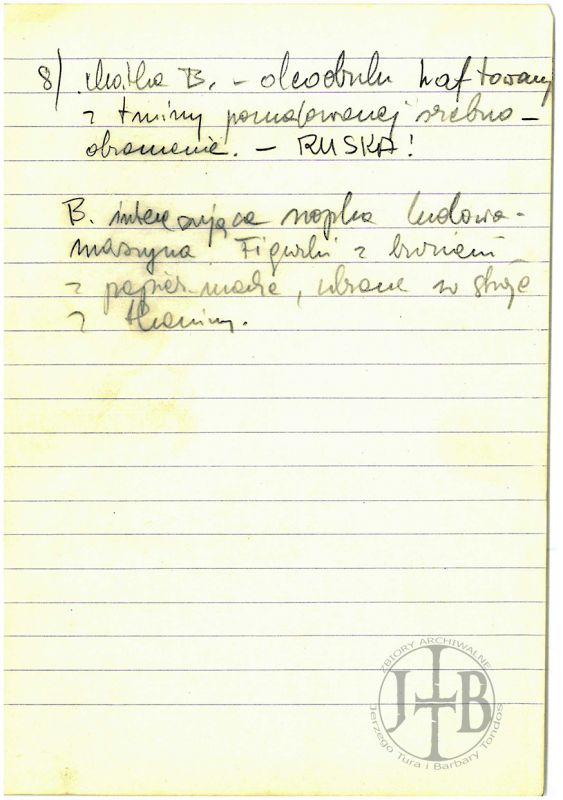 8) Matka B. – oleodruk haftowany
z
pomalowanej srebrno –
obramienie. – RUSKA!
B. interesująca szopka ludowa –
maszyna. Figurki z
z papier-mache, ubrane w stroje
z tkaniny.
ZBIORY ARCHIWALNE
JTBT
Jerzego Tura i Barbary Tondos